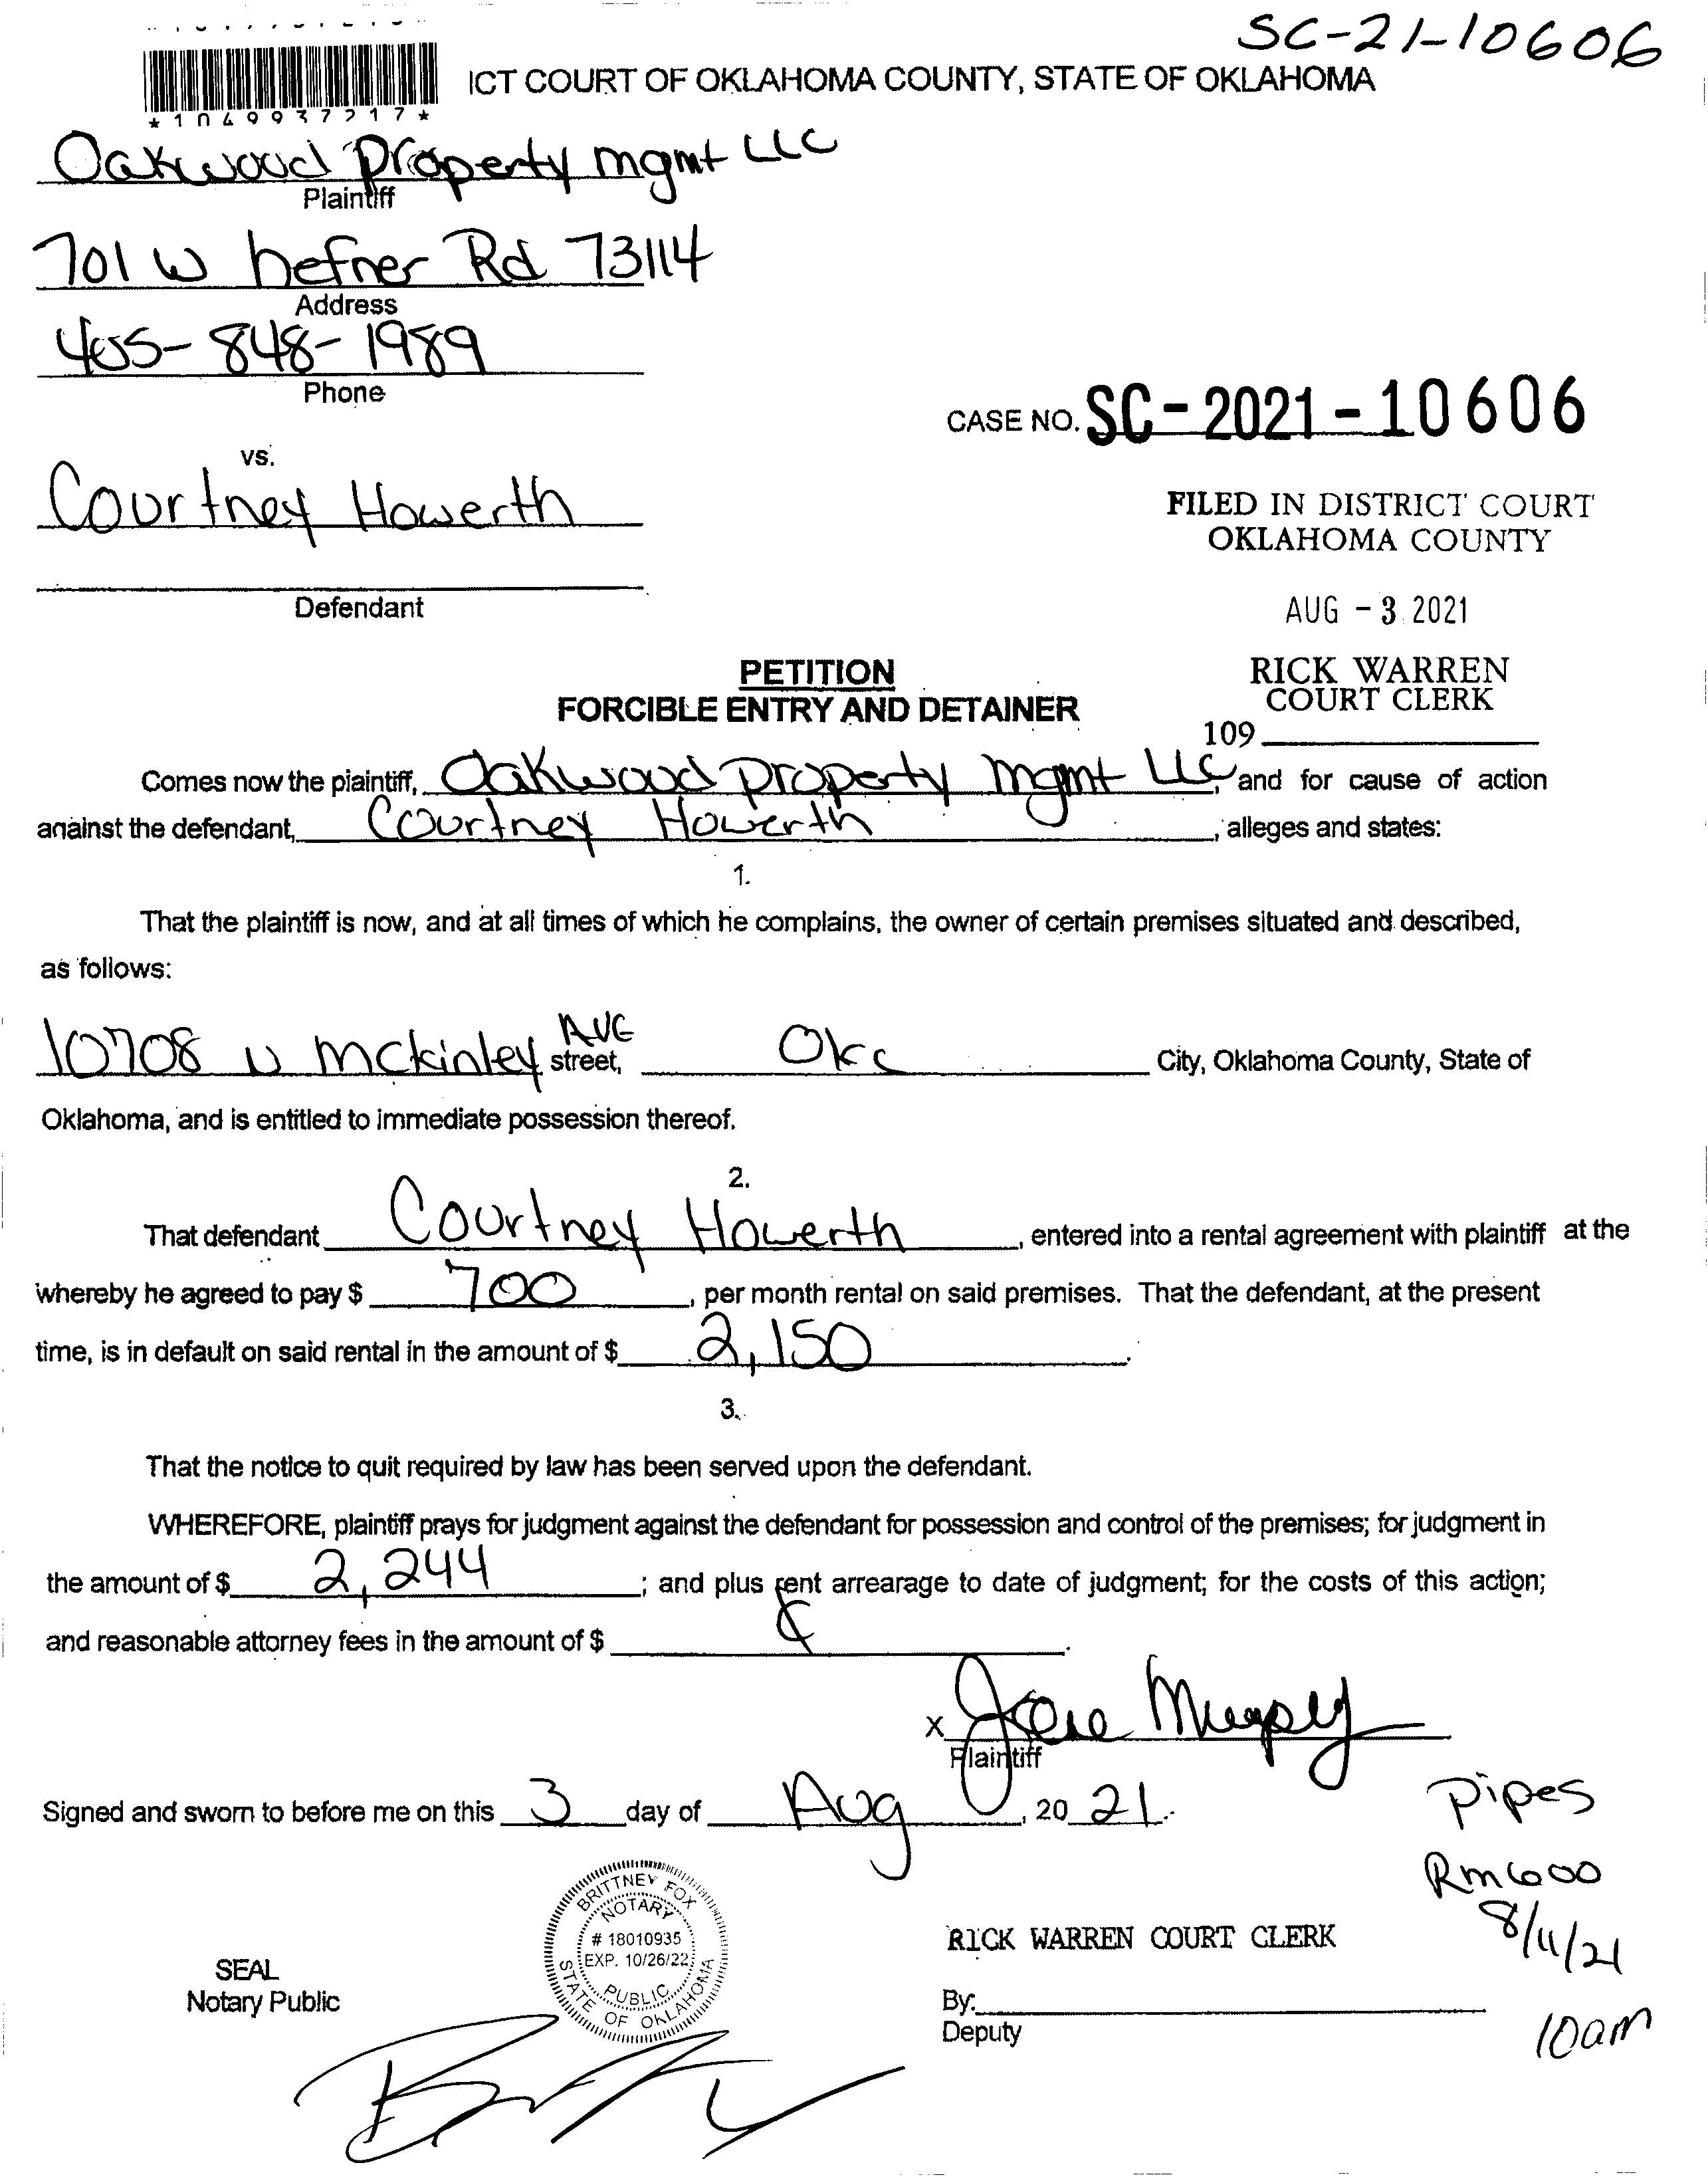 SC-21-10606
ICT COURT OF OKLAHOMA COUNTY, STATE OF OKLAHOMA
*1049937217*
Oakwood Property mgmt LLC
Plaintiff
701 W hefner Rd 73114
Address
405-848-1989
Phone
CASE NO. SC-2021-10606
vs.
Courtney Howerth
FILED IN DISTRICT COURT
OKLAHOMA COUNTY
Defendant
AUG - 3 2021
PETITION
FORCIBLE ENTRY AND DETAINER
RICK WARREN
COURT CLERK
109
Comes now the plaintiff, Oakwood property mgmt LLC, and for cause of action
against the defendant, Courtney Howerth, alleges and states:
1.
That the plaintiff is now, and at all times of which he complains, the owner of certain premises situated and described,
as follows:
10708 N mckinley AVE street, Okc City, Oklahoma County, State of
Oklahoma, and is entitled to immediate possession thereof.
2.
That defendant Courtney Howerth, entered into a rental agreement with plaintiff at the
whereby he agreed to pay $ 700, per month rental on said premises. That the defendant, at the present
time, is in default on said rental in the amount of $ 2,150.
3.
That the notice to quit required by law has been served upon the defendant.
WHEREFORE, plaintiff prays for judgment against the defendant for possession and control of the premises; for judgment in
the amount of $ 2,244; and plus rent arrearage to date of judgment; for the costs of this action;
and reasonable attorney fees in the amount of $
X
Plaintiff
Signed and sworn to before me on this 3 day of Aug, 20 21.
pipes
Rm 600
8/11/21
10am
BRITTNEY FOX
NOTARY
# 18010935
EXP. 10/26/22
PUBLIC
STATE OF OKLAHOMA
SEAL
Notary Public
RICK WARREN COURT CLERK
By:
Deputy